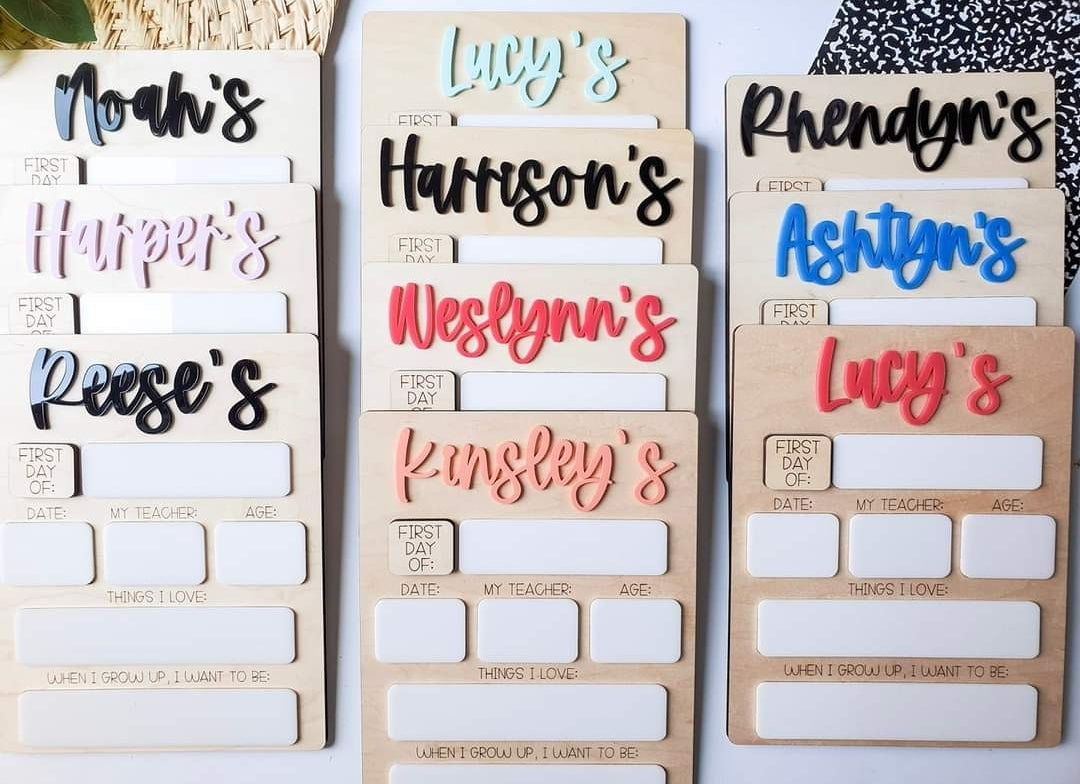 Noah's
FIRST
DAY
Harper's
FIRST
DAY
OF:
Reese's
FIRST
DAY
OF:
DATE: MY TEACHER: AGE:
THINGS I LOVE:
WHEN I GROW UP, I WANT TO BE:
Lucy's
FIRST
Harrison's
FIRST
DAY
Weslynn's
FIRST
DAY
OF:
Kinsley's
FIRST
DAY
OF:
DATE: MY TEACHER: AGE:
THINGS I LOVE:
WHEN I GROW UP, I WANT TO BE:
Rhendyn's
FIRST
Ashtyn's
FIRST
DAY
Lucy's
FIRST
DAY
OF:
DATE: MY TEACHER: AGE:
THINGS I LOVE:
WHEN I GROW UP, I WANT TO BE: